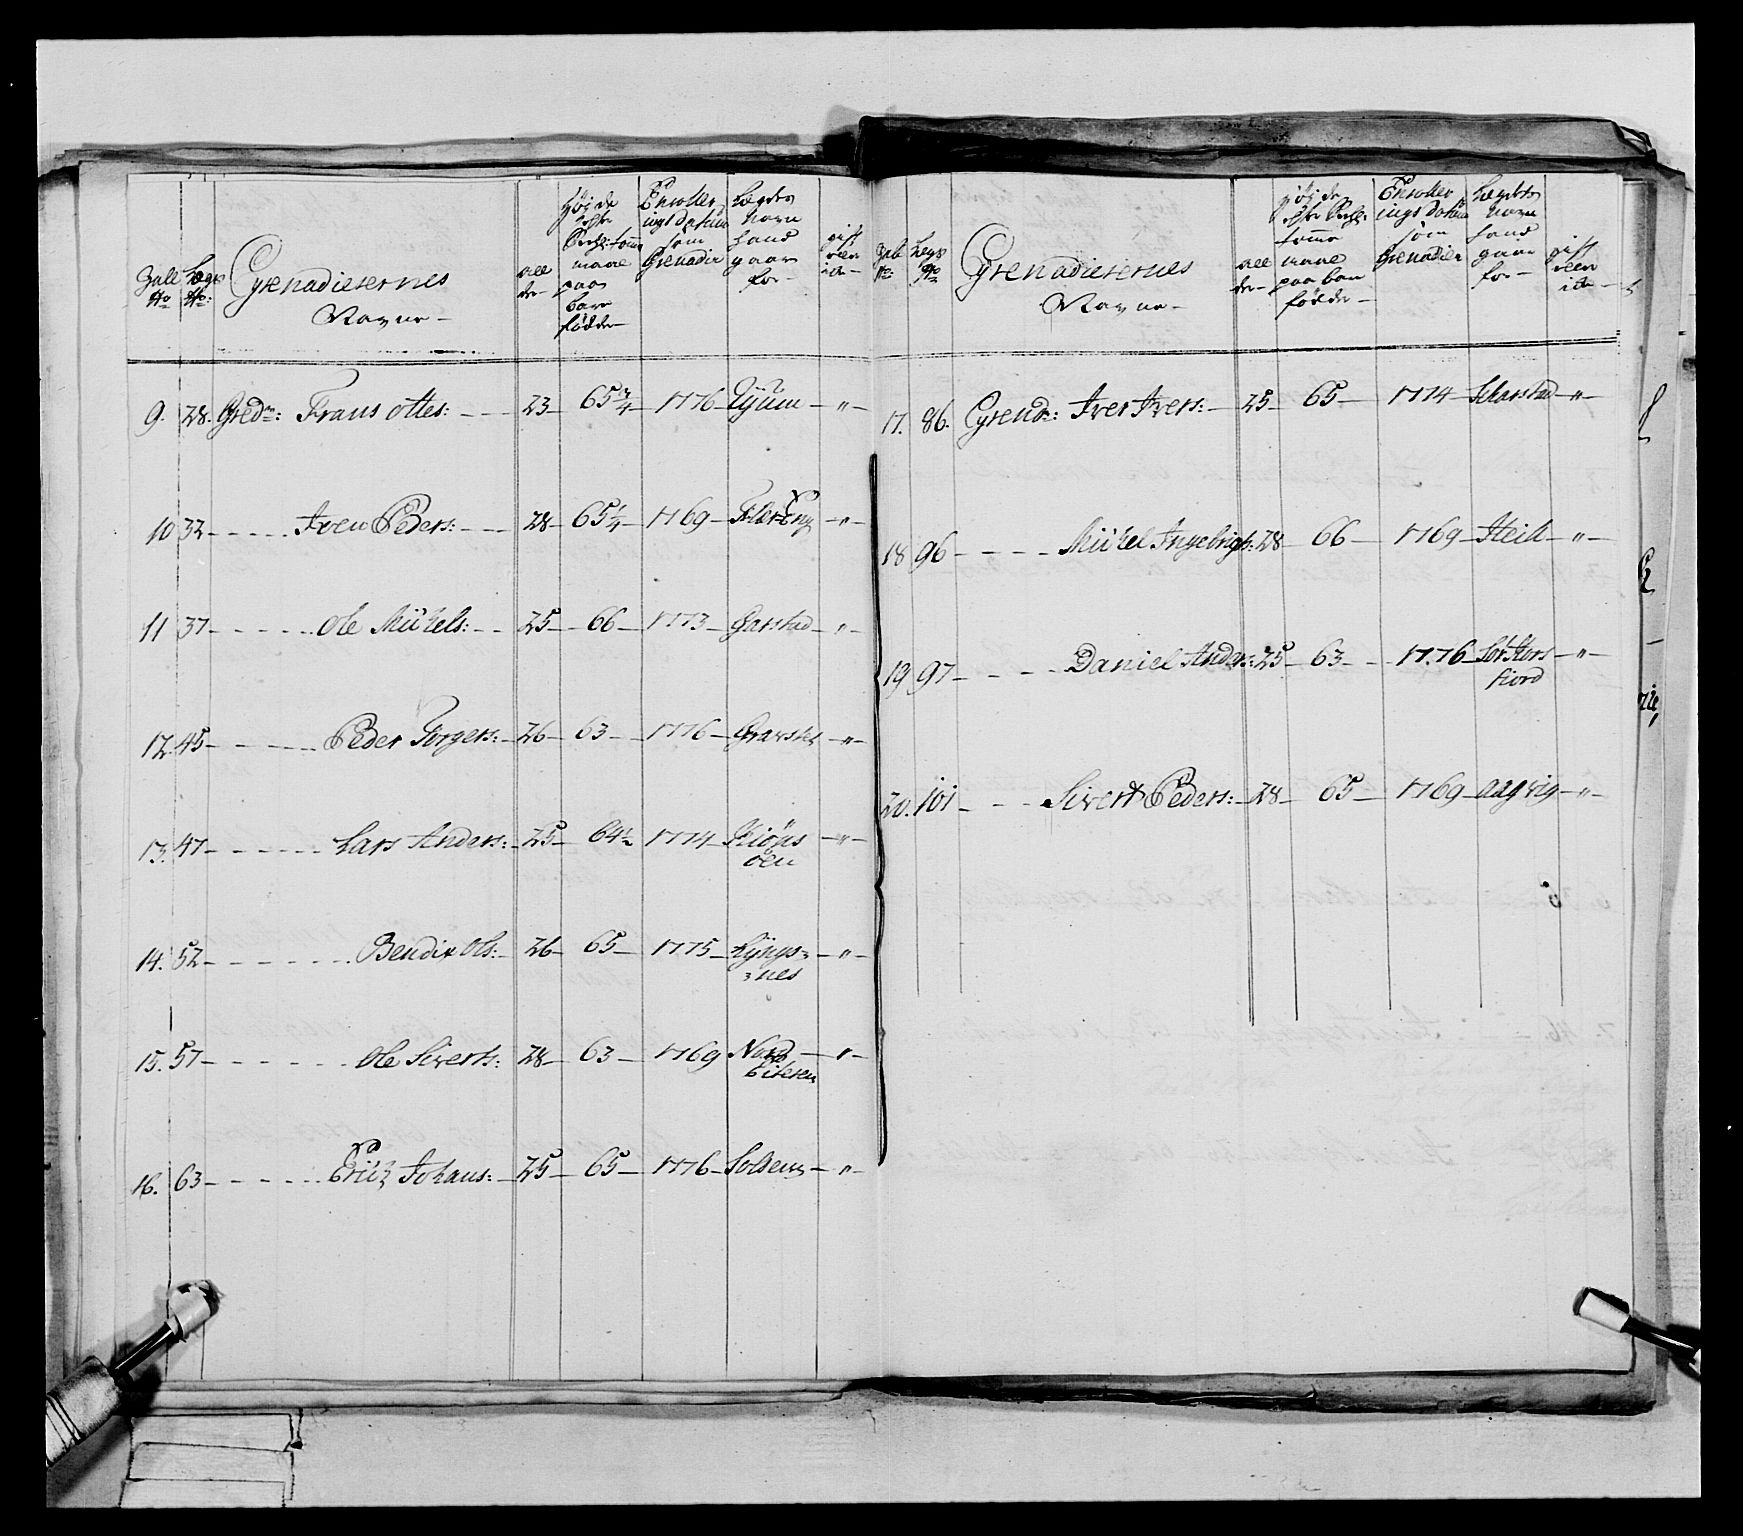 Zall No
Legs No:
Grenadierernes Navne -
all der -
Højde efter Rhl: tomme maal paa bare fødder -
Enrollerings Datum som Grenadier
Legdets Navn hand gaar for -
gift eller ei -
9. 28. Gredr: Frans Ottes: - - 23 - 65 3/4 - 1776 - Tjüm - " -
10 32 - - - - Iven Peders: - - 28 - 65 1/4 - 1769 - " -
11 37 - - - - - Ole Mikels: - - 25 - 66 - 1773 - Garstad - " -
12. 45 - - - - - Peder Torgers: - 26 - 63 - 1776 - " -
13. 47 - - - - - Lars Anders: - 25 - 64 1/2 1774 - Kiøps - " -
øen
14. 52 - - - - - - Bendix Ols: - 26 - 65 - 1775 - Lyngs= - " -
=nes
15. 57 - - - - - - Ole Siverts: 28 - 63 - 1769 Nord - " -
16. 63 - - - - - Erich Johans: - 25 - 65 - 1776 - Solsem - " -
Zal No
Legs No
Grenadierernes Navne -
all der -
Højde efter Rhl: tomme maal paa bare fødder -
Enrollerings Datum som Grenadier
Legdets Navn hand gaar for -
gift eller ei -
17. 86. Grendr: Iver Ivers: - 25 - 65 - 1774 - Skarstad - " -
18 96 - - - - Mikel Ingebrigts: 28 - 66 - 1769 - Heill - " -
19 97 - - - - Daniel Anders: 25 - 63 - - 1776 - Sør Hors - " -
fiord
20. 101 - - - Sivert Peders: - 28 - 65 - 1769 - Aagvig - " -